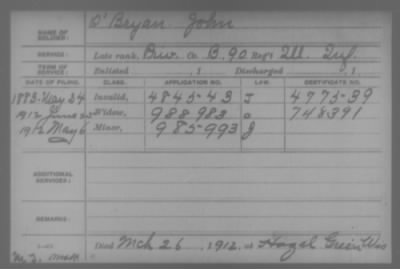 NAME OF SOLDIER: O'Bryan John
SERVICE: Late rank, Priv. Co. B. 90 Reg't Ill. Inf.
TERM OF SERVICE: Enlisted , 1 Discharged , 1
DATE OF FILING. CLASS. APPLICATION NO. LAW. CERTIFICATE NO.
1883-May 24 Invalid, 484543 J 477539
1912 June Widow, 988983 748391
1912 May 6 Minor, 985993 J
ADDITIONAL SERVICES:
REMARKS:
Died Mch 26, 1912, at Hazel Green Wis